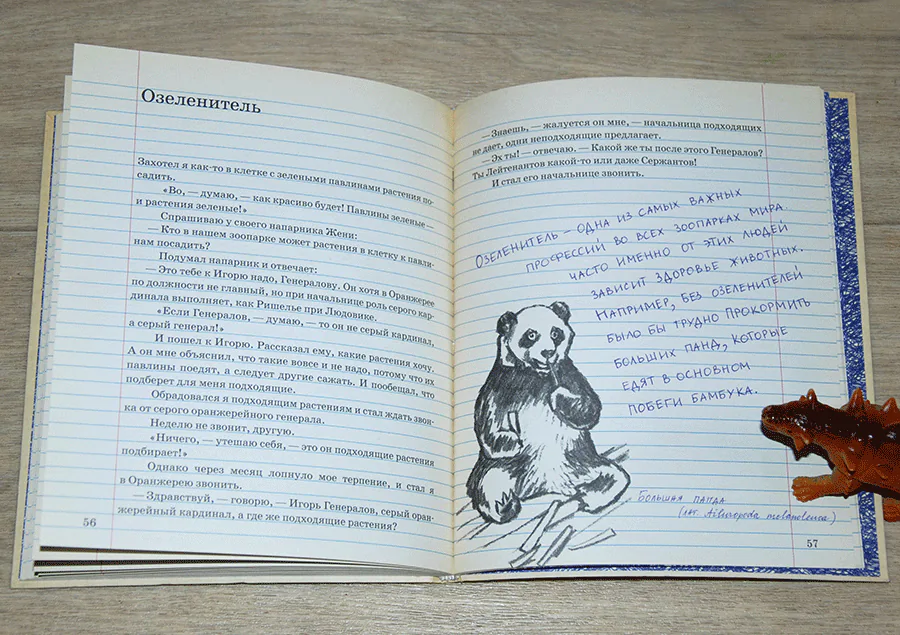 Озеленитель
Захотел я как-то в клетке с зелеными павлинами растения по-
садить.
«Во, — думаю, — как красиво будет! Павлины зеленые —
и растения зеленые!»
Спрашиваю у своего напарника Жени:
— Кто в нашем зоопарке может растения в клетку к павли-
нам посадить?
Подумал напарник и отвечает:
— Это тебе к Игорю надо, Генералову. Он хотя в Оранжерее
по должности не главный, но при начальнице роль серого кар-
динала выполняет, как Ришелье при Людовике.
«Если Генералов, — думаю, — то он не серый кардинал,
а серый генерал!»
И пошел к Игорю. Рассказал ему, какие растения хочу.
А он мне объяснил, что такие вовсе и не надо, потому что их
павлины поедят, а следует другие сажать. И пообещал, что
подберет для меня подходящие.
Обрадовался я подходящим растениям и стал ждать звон-
ка от серого оранжерейного генерала.
Неделю не звонит, другую.
«Ничего, — утешаю себя, — это он подходящие растения
подбирает!»
Однако через месяц лопнуло мое терпение, и стал я
в Оранжерею звонить.
— Здравствуй, — говорю, — Игорь Генералов, серый оран-
жерейный кардинал, а где же подходящие растения?
56
— Знаешь, — жалуется он мне, — начальница подходящих
не дает, одни неподходящие предлагает.
— Эх ты! — отвечаю. — Какой же ты после этого Генералов?
Ты Лейтенантов какой-то или даже Сержантов!
И стал его начальнице звонить.
Озеленитель – одна из самых важных
профессий во всех зоопарках мира.
Часто именно от этих людей
зависит здоровье животных.
Например, без озеленителей
было бы трудно прокормить
больших панд, которые
едят в основном
побеги бамбука.
Большая панда
(лат Ailuropoda melanoleuca)
57